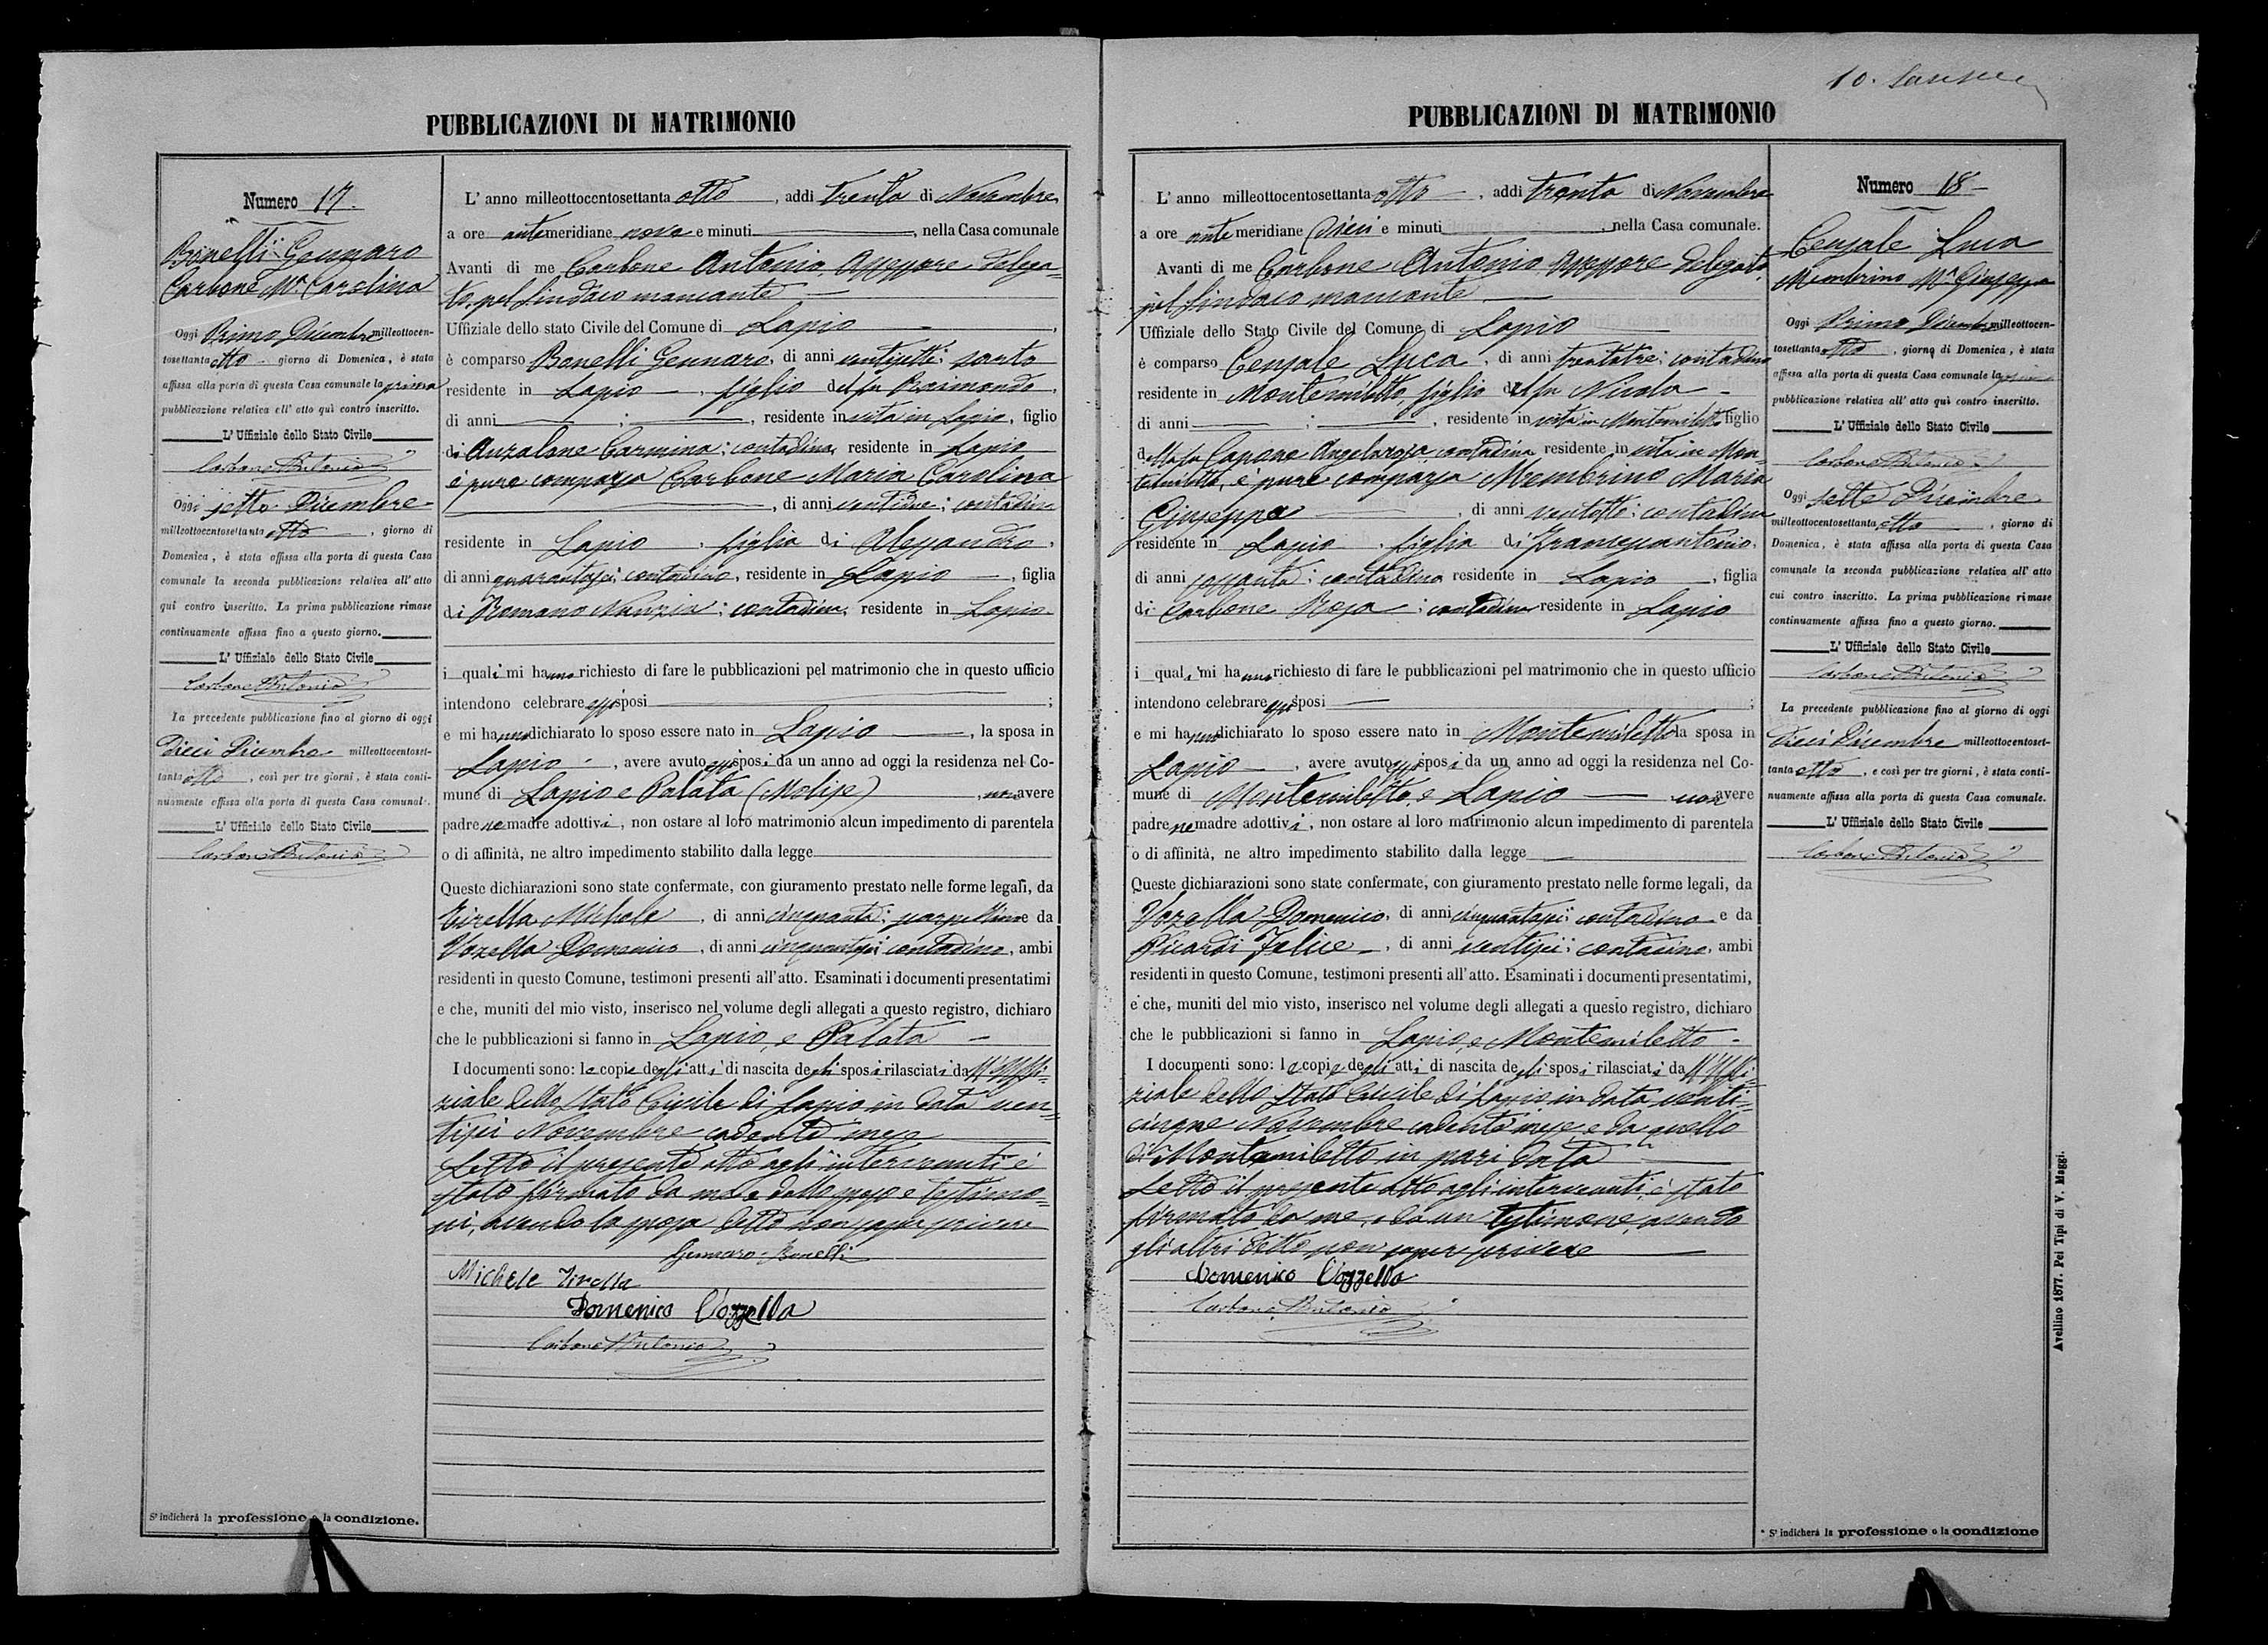 PUBBLICAZIONI DI MATRIMONIO
Numero 17.
Bonelli Gennaro
Carbone Mª Carolina
Oggi Primo Dicembre milleottocen-
tosettanta otto giorno di Domenica, è stata
affissa alla porta di questa Casa comunale la prima
pubblicazione relativa all' atto quì contro inscritto.
L' Uffiziale dello Stato Civile
Carbone Antonio
Oggi sette Dicembre
milleottocentosettanta otto, giorno di
Domenica, è stata affissa alla porta di questa Casa
comunale la seconda pubblicazione relativa all' atto
qui contro inscritto. La prima pubblicazione rimase
continuamente affissa fino a questo giorno.
L' Uffiziale dello Stato Civile
Carbone Antonio
La precedente pubblicazione fino al giorno di oggi
Dieci Dicembre milleottocentoset-
tanta otto, così per tre giorni, è stata conti-
nuamente affissa alla porta di questa Casa comunale.
L' Uffiziale dello Stato Civile
Carbone Antonio
Si indicherà la professione o la condizione.
L' anno milleottocentosettanta otto, addì trenta di Novembre
a ore antemeridiane nove e minuti, nella Casa comunale
Avanti di me Carbone Antonio Assessore delega=
to, pel Sindaco mancante
Uffiziale dello stato Civile del Comune di Lapio,
è comparso Bonelli Gennaro, di anni ventisette; sarto
residente in Lapio, figlio del fu Raimondo,
di anni ; , residente in vita in Lapio, figlio
di Auzalone Carmina; contadina, residente in Lapio
è pure comparsa Carbone Maria Carolina
, di anni ventidue; contadina
residente in Lapio, figlia di Alessandro,
di anni quarantasei; contadino, residente in Lapio, figlia
di Romano Nunzia; contadina, residente in Lapio
i quali mi hanno richiesto di fare le pubblicazioni pel matrimonio che in questo ufficio
intendono celebrare essi sposi ;
e mi hanno dichiarato lo sposo essere nato in Lapio, la sposa in
Lapio, avere avuto essi sposi da un anno ad oggi la residenza nel Co-
mune di Lapio e Palata (Molise), non avere
padre ne madre adottivi, non ostare al loro matrimonio alcun impedimento di parentela
o di affinità, ne altro impedimento stabilito dalla legge
Queste dichiarazioni sono state confermate, con giuramento prestato nelle forme legali, da
Tirella Michele, di anni cinquanta; scarpellino e da
Vozella Domenico, di anni cinquantasei contadino, ambi
residenti in questo Comune, testimoni presenti all' atto. Esaminati i documenti presentatimi
e che, muniti del mio visto, inserisco nel volume degli allegati a questo registro, dichiaro
che le pubblicazioni si fanno in Lapio, e Palata
I documenti sono: le copie degli atti di nascita degli sposi rilasciati da ll'Uffi-
ziale dello Stato Civile di Lapio in data ven=
tisei Novembre cadente mese
Letto il presente atto agli intervenuti è
stato firmato da me e dallo sposo e testimo=
ni, avendo la sposa detto non saper scrivere
Gennaro Bonelli
Michele Tirella
Domenico Vozzella
Carbone Antonio
PUBBLICAZIONI DI MATRIMONIO
10.
L' anno milleottocentosettanta otto, addì trenta di Novembre
a ore antemeridiane dieci e minuti, nella Casa comunale.
Avanti di me Carbone Antonio Assessore delegato,
pel Sindaco mancante
Uffiziale dello Stato Civile del Comune di Lapio
è comparso Censale Luca, di anni trentatre; contadino
residente in Montemiletto, figlio del fu Nicola
di anni ; , residente in vita in Montemiletto figlio
della fu Capone Angelarosa contadina residente in vita in Mon=
temiletto, è pure comparsa Membrino Maria
Giuseppa, di anni ventotto; contadina
residente in Lapio, figlia di Francescantonio,
di anni sessanta; contadino residente in Lapio, figlia
di Carbone Rosa; contadina residente in Lapio
i quali mi hanno richiesto di fare le pubblicazioni pel matrimonio che in questo ufficio
intendono celebrare essi sposi ;
e mi hanno dichiarato lo sposo essere nato in Montemiletto la sposa in
Lapio, avere avuto essi sposi da un anno ad oggi la residenza nel Co-
mune di Montemiletto, e Lapio non avere
padre ne madre adottivi, non ostare al loro matrimonio alcun impedimento di parentela
o di affinità, ne altro impedimento stabilito dalla legge
Queste dichiarazioni sono state confermate, con giuramento prestato nelle forme legali, da
Vozella Domenico, di anni cinquantasei contadino e da
Picardi Felice, di anni ventisei; contadino, ambi
residenti in questo Comune, testimoni presenti all' atto. Esaminati i documenti presentatimi,
e che, muniti del mio visto, inserisco nel volume degli allegati a questo registro, dichiaro
che le pubblicazioni si fanno in Lapio, e Montemiletto
I documenti sono: le copie degli atti di nascita degli sposi rilasciati da ll'Uffi-
ziale dello Stato Civile di Lapio in data venti=
cinque Novembre cadente mese e da quello
di Montemiletto in pari data
Letto il presente atto agli intervenuti, è stato
firmato da me, e da un testimone, avendo
gli altri detto non saper scrivere
Domenico Vozzella
Carbone Antonio
Numero 18
Censale Luca
Membrino Mª Giuseppa
Oggi Primo Dicembre milleottocen-
tosettanta otto, giorno di Domenica, è stata
affissa alla porta di questa Casa comunale la prima
pubblicazione relativa all' atto quì contro inscritto.
L' Uffiziale dello Stato Civile
Carbone Antonio
Oggi sette Dicembre
milleottocentosettanta otto, giorno di
Domenica, è stata affissa alla porta di questa Casa
comunale la seconda pubblicazione relativa all' atto
cui contro inscritto. La prima pubblicazione rimase
continuamente affissa fino a questo giorno.
L' Uffiziale dello Stato Civile
Carbone Antonio
La precedente pubblicazione fino al giorno di oggi
Dieci Dicembre milleottocentoset-
tanta otto, e così per tre giorni, è stata conti-
nuamente affissa alla porta di questa Casa comunale.
L' Uffiziale dello Stato Civile
Carbone Antonio
* Si indicherà la professione o la condizione
Avellino 1877. Pei Tipi di V. Maggi.